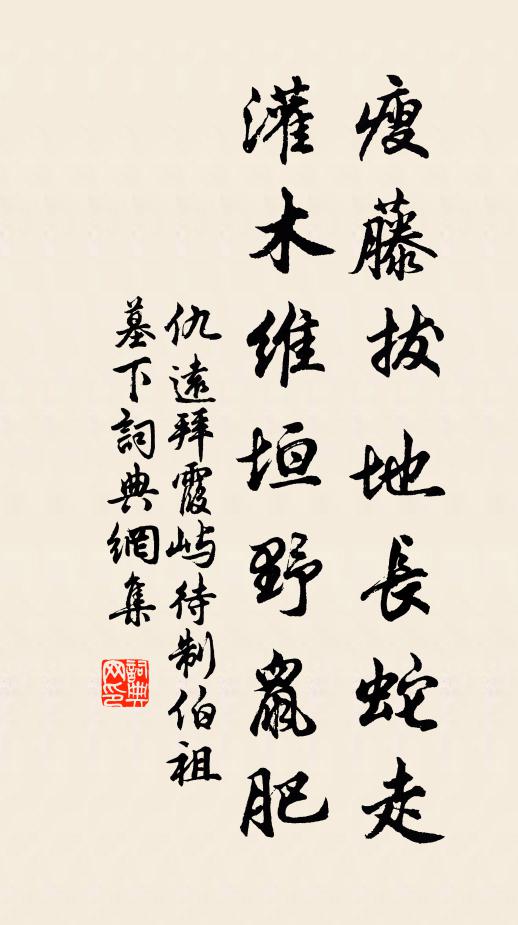 瘦藤拔地長蛇走
灌木維垣野鼠肥
仇遠拜霞屿待制伯祖
墓下詞典網集
詞典网印